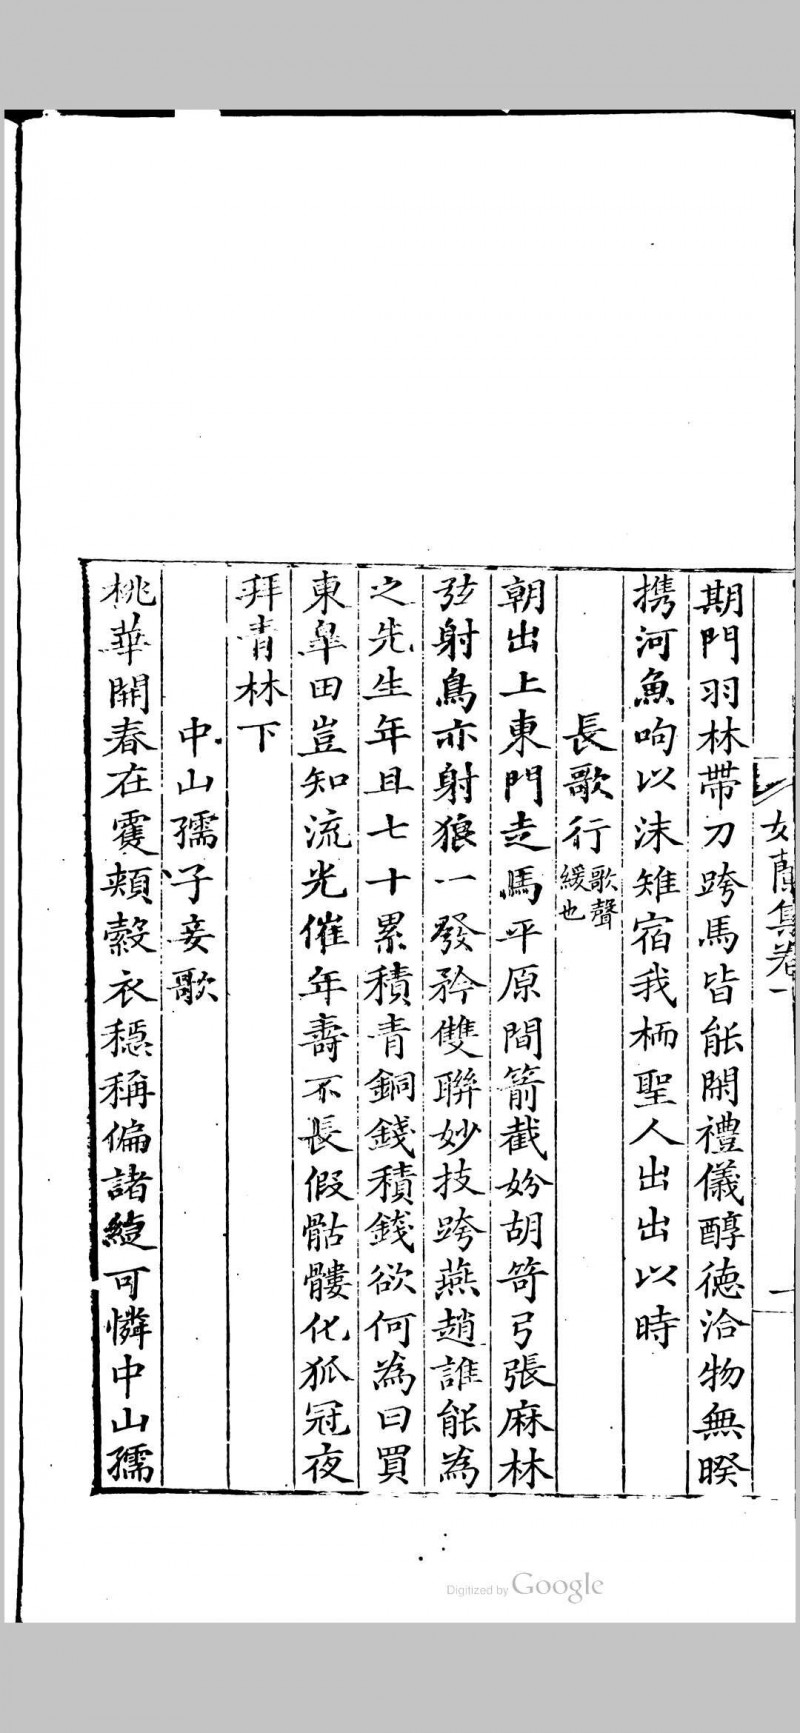 女蘭集卷一
一
期門羽林帶刀跨馬皆能閑禮儀醇徳洽物無暌
攜河魚呴以沫雉宿我栭聖人出出以時
長歌行歌聲緩也
朝出上東門走馬平原間箭截妢胡笴弓張麻林
弦射鳥亦射狼一發矜雙聯妙技跨燕趙誰能為
之先生年且七十累積青銅錢積錢欲何為曰買
東皐田豈知流光催年壽不長假骷髏化狐冠夜
拜青林下
中山孺子妾歌
桃華開春在靌頰縠衣穩稱偏諸緶可憐中山孺
Digitized by Google